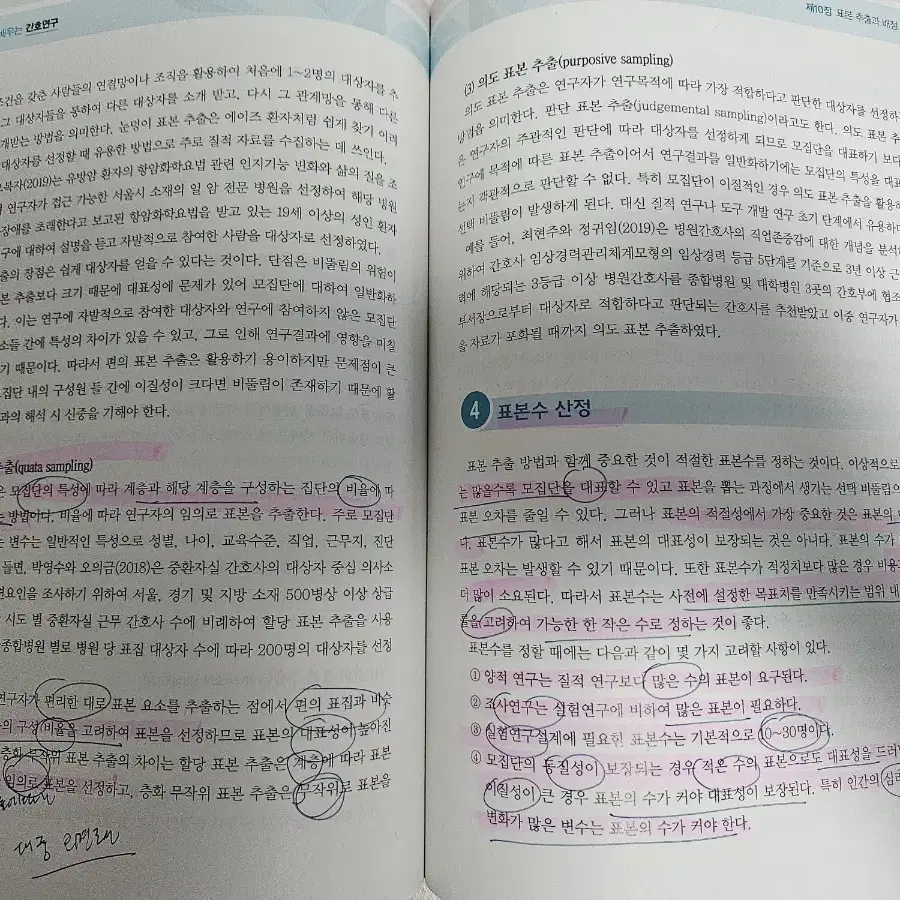 배우는 간호연구
조건을 갖춘 사람들의 연결망이나 조직을 활용하여 처음에 1~2명의 대상자를 추
그 대상자들을 통하여 다른 대상자를 소개 받고, 다시 그 관계망을 통해 다른
개받는 방법을 의미한다. 눈덩이 표본 추출은 에이즈 환자처럼 쉽게 찾기 어려
대상자를 선정할 때 유용한 방법으로 주로 질적 자료를 수집하는 데 쓰인다.
복자(2019)는 유방암 환자의 항암화학요법 관련 인지기능 변화와 삶의 질을 조
연구자가 접근 가능한 서울시 소재의 일 암 전문 병원을 선정하여 해당 병원
장애를 초래한다고 보고된 항암화학요법을 받고 있는 19세 이상의 성인 환자
구에 대하여 설명을 듣고 자발적으로 참여한 사람을 대상자로 선정하였다.
출의 장점은 쉽게 대상자를 얻을 수 있다는 것이다. 단점은 비뚤림의 위험이
본 추출보다 크기 때문에 대표성에 문제가 있어 모집단에 대하여 일반화하
다. 이는 연구에 자발적으로 참여한 대상자와 연구에 참여하지 않은 모집단
소들 간에 특성의 차이가 있을 수 있고, 그로 인해 연구결과에 영향을 미칠
기 때문이다. 따라서 편의 표본 추출은 활용하기 용이하지만 문제점이 큰
집단 내의 구성원 들 간에 이질성이 크다면 비뚤림이 존재하기 때문에 활
과의 해석 시 신중을 기해야 한다.
추출(quata sampling)
은 모집단의 특성에 따라 계층과 해당 계층을 구성하는 집단의 비율에 따
는 방법이다. 비율에 따라 연구자의 임의로 표본을 추출한다. 주로 모집단
는 변수는 일반적인 특성으로 성별, 나이, 교육수준, 직업, 근무지, 진단
들면, 박영수와 오의금(2018)은 중환자실 간호사의 대상자 중심 의사소
변요인을 조사하기 위하여 서울, 경기 및 지방 소재 500병상 이상 상급
시도 별 중환자실 근무 간호사 수에 비례하여 할당 표본 추출을 사용
종합병원 별로 병원 당 표집 대상자 수에 따라 200명의 대상자를 선정
연구자가 편리한 대로 표본 요소를 추출하는 점에서 편의 표집과 비슷
의 구성 비율을 고려하여 표본을 선정하므로 표본의 대표성이 높아진
층화 무작위 표본 추출의 차이는 할당 표본 추출은 계층에 따라 표본
임의로 표본을 선정하고, 층화 무작위 표본 추출은 무작위로 표본을
제10장 표본 추출과 배정
(3) 의도 표본 추출(purposive sampling)
의도 표본 추출은 연구자가 연구목적에 따라 가장 적합하다고 판단한 대상자를 선정하
방법을 의미한다. 판단 표본 추출(judgemental sampling)이라고도 한다. 의도 표본 추
은 연구자의 주관적인 판단에 따라 대상자를 선정하게 되므로 모집단을 대표하기 보다
연구에 목적에 따른 표본 추출이어서 연구결과를 일반화하기에는 모집단의 특성을 대표
는지 객관적으로 판단할 수 없다. 특히 모집단이 이질적인 경우 의도 표본 추출을 활용하
선택 비뚤림이 발생하게 된다. 대신 질적 연구나 도구 개발 연구 초기 단계에서 유용하다
예를 들어, 최현주와 정귀임(2019)은 병원간호사의 직업존중감에 대한 개념을 분석하
위하여 간호사 임상경력관리체계모형의 임상경력 등급 5단계를 기준으로 3년 이상 근
력에 해당되는 3등급 이상 병원간호사를 종합병원 및 대학병원 3곳의 간호부에 협조
부서장으로부터 대상자로 적합하다고 판단되는 간호사를 추천받았고 이중 연구자가
을 자료가 포화될 때까지 의도 표본 추출하였다.
4 표본수 산정
표본 추출 방법과 함께 중요한 것이 적절한 표본수를 정하는 것이다. 이상적으로
는 많을수록 모집단을 대표할 수 있고 표본을 뽑는 과정에서 생기는 선택 비뚤림의
표본 오차를 줄일 수 있다. 그러나 표본의 적절성에서 가장 중요한 것은 표본의
다. 표본수가 많다고 해서 표본의 대표성이 보장되는 것은 아니다. 표본의 수가
표본 오차는 발생할 수 있기 때문이다. 또한 표본수가 적정치보다 많은 경우 비용
더 많이 소요된다. 따라서 표본수는 사전에 설정한 목표치를 만족시키는 범위 내
률을 고려하여 가능한 한 작은 수로 정하는 것이 좋다.
표본수를 정할 때에는 다음과 같이 몇 가지 고려할 사항이 있다.
① 양적 연구는 질적 연구보다 많은 수의 표본이 요구된다.
② 조사연구는 실험연구에 비하여 많은 표본이 필요하다.
③ 실험연구설계에 필요한 표본수는 기본적으로 10~30명이다.
④ 모집단의 동질성이 보장되는 경우 적은 수의 표본으로도 대표성을 드러
이질성이 큰 경우 표본의 수가 커야 대표성이 보장된다. 특히 인간의 심리
변화가 많은 변수는 표본의 수가 커야 한다.